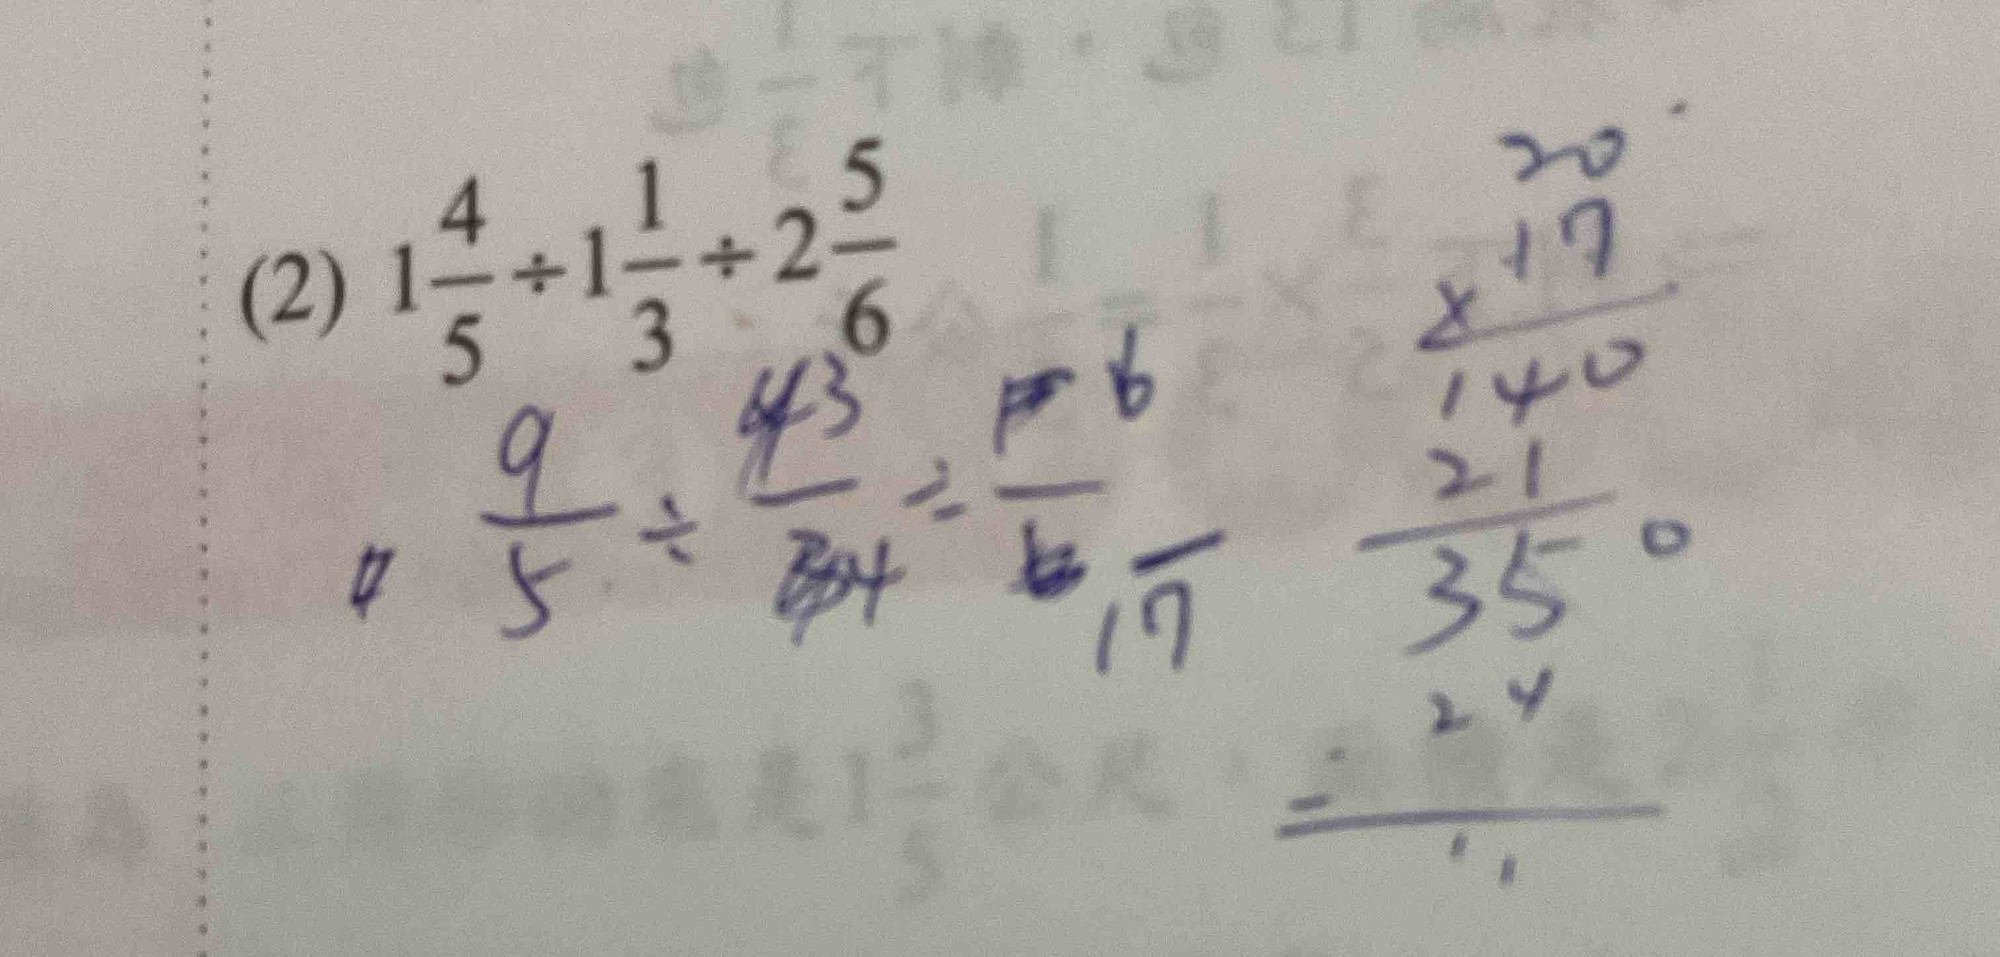 (2) 1 4/5 ÷ 1 1/3 ÷ 2 5/6
9/5 ÷ 3/4 ÷ 6/17
20
× 17
140
21
350
24
11